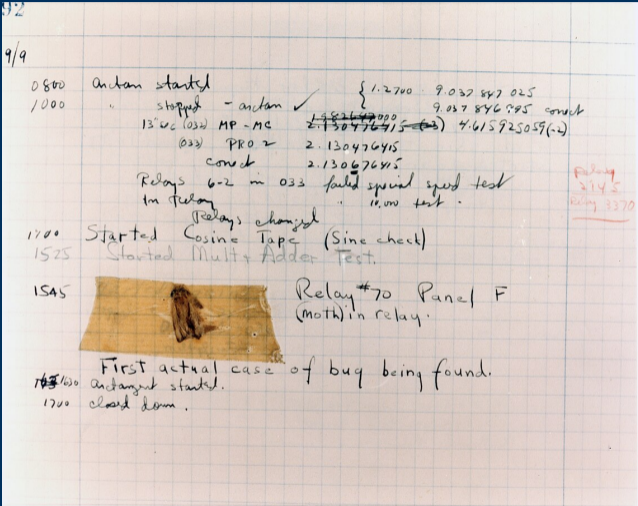 92
9/9
0800 antan started { 1.2700 9.037 847 025
1000 " stopped - antan ✓ 9.037 846 995 correct
13"uc (032) MP - MC 2.130476415 (-3) 4.615925059(-2)
(033) PRO 2 2.130476415
correct 2.130676415
Relays 6-2 in 033 failed special speed test
In Relay " 10,000 test.
Relay 2145
Relay 3370
Relays changed
1100 Started Cosine Tape (Sine check)
1525 Started Mult+Adder Test.
1545 Relay #70 Panel F
(moth) in relay.
First actual case of bug being found.
1630 antangent started.
1700 closed down.